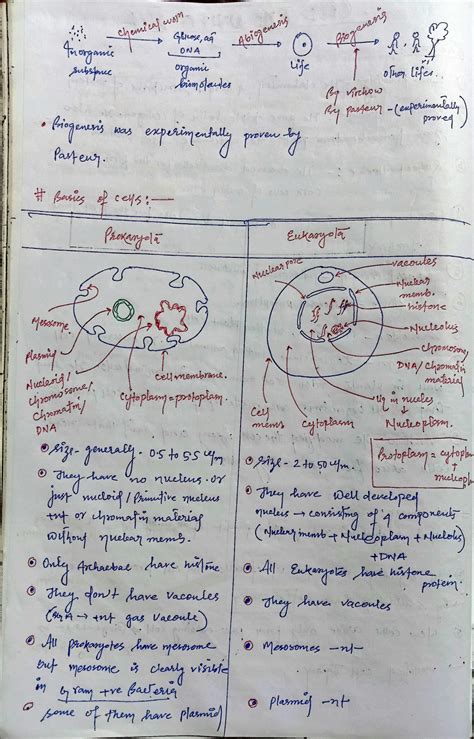 chemical
Inorganic
substance
Glucose, aa
DNA
organic
biomolecules
Abiogenesis
Life
Biogenesis
Other lifes
By virchow
By pasteur - (experimentally
proved)
• Biogenesis was experimentally proven by
Pasteur.
# Basics of cells:—
Prokaryota
Mesosome
Plasmid
Nucleoid/
chromosome/
chromatin/
DNA
Cell membrane.
Cytoplasm = protoplasm
Eukaryota
Nuclear pore
vacoules
Nuclear
memb.
histone
Nucleolus
chromosom
DNA/Chromatin
material
liq in nucleus
↓
Nucleoplasm.
Cell
memb
cytoplasm
Protoplasm = cytoplasm
+
nucleoplasm
Size - generally - 0.5 to 5.5 u/m
They have no nucleus. or
just nucloid / Primitive nucleus
+nt or chromatin material
without nuclear memb.
Only Archaebac have histone
They don't have vacoules
(→ +nt gas vacoule)
All prokaryotes have mesosome
but mesosome is clearly visible
in gram +ve Bacteria
some of them have plasmid
Size - 2 to 50 u/m.
They have well developed
nucleus → consisting of 4 components
(Nuclear memb + Nucleoplasm + Nucleolus)
+DNA
All Eukaryotes have histone
protein.
They have vacoules
Mesosomes -nt
Plasmid -nt